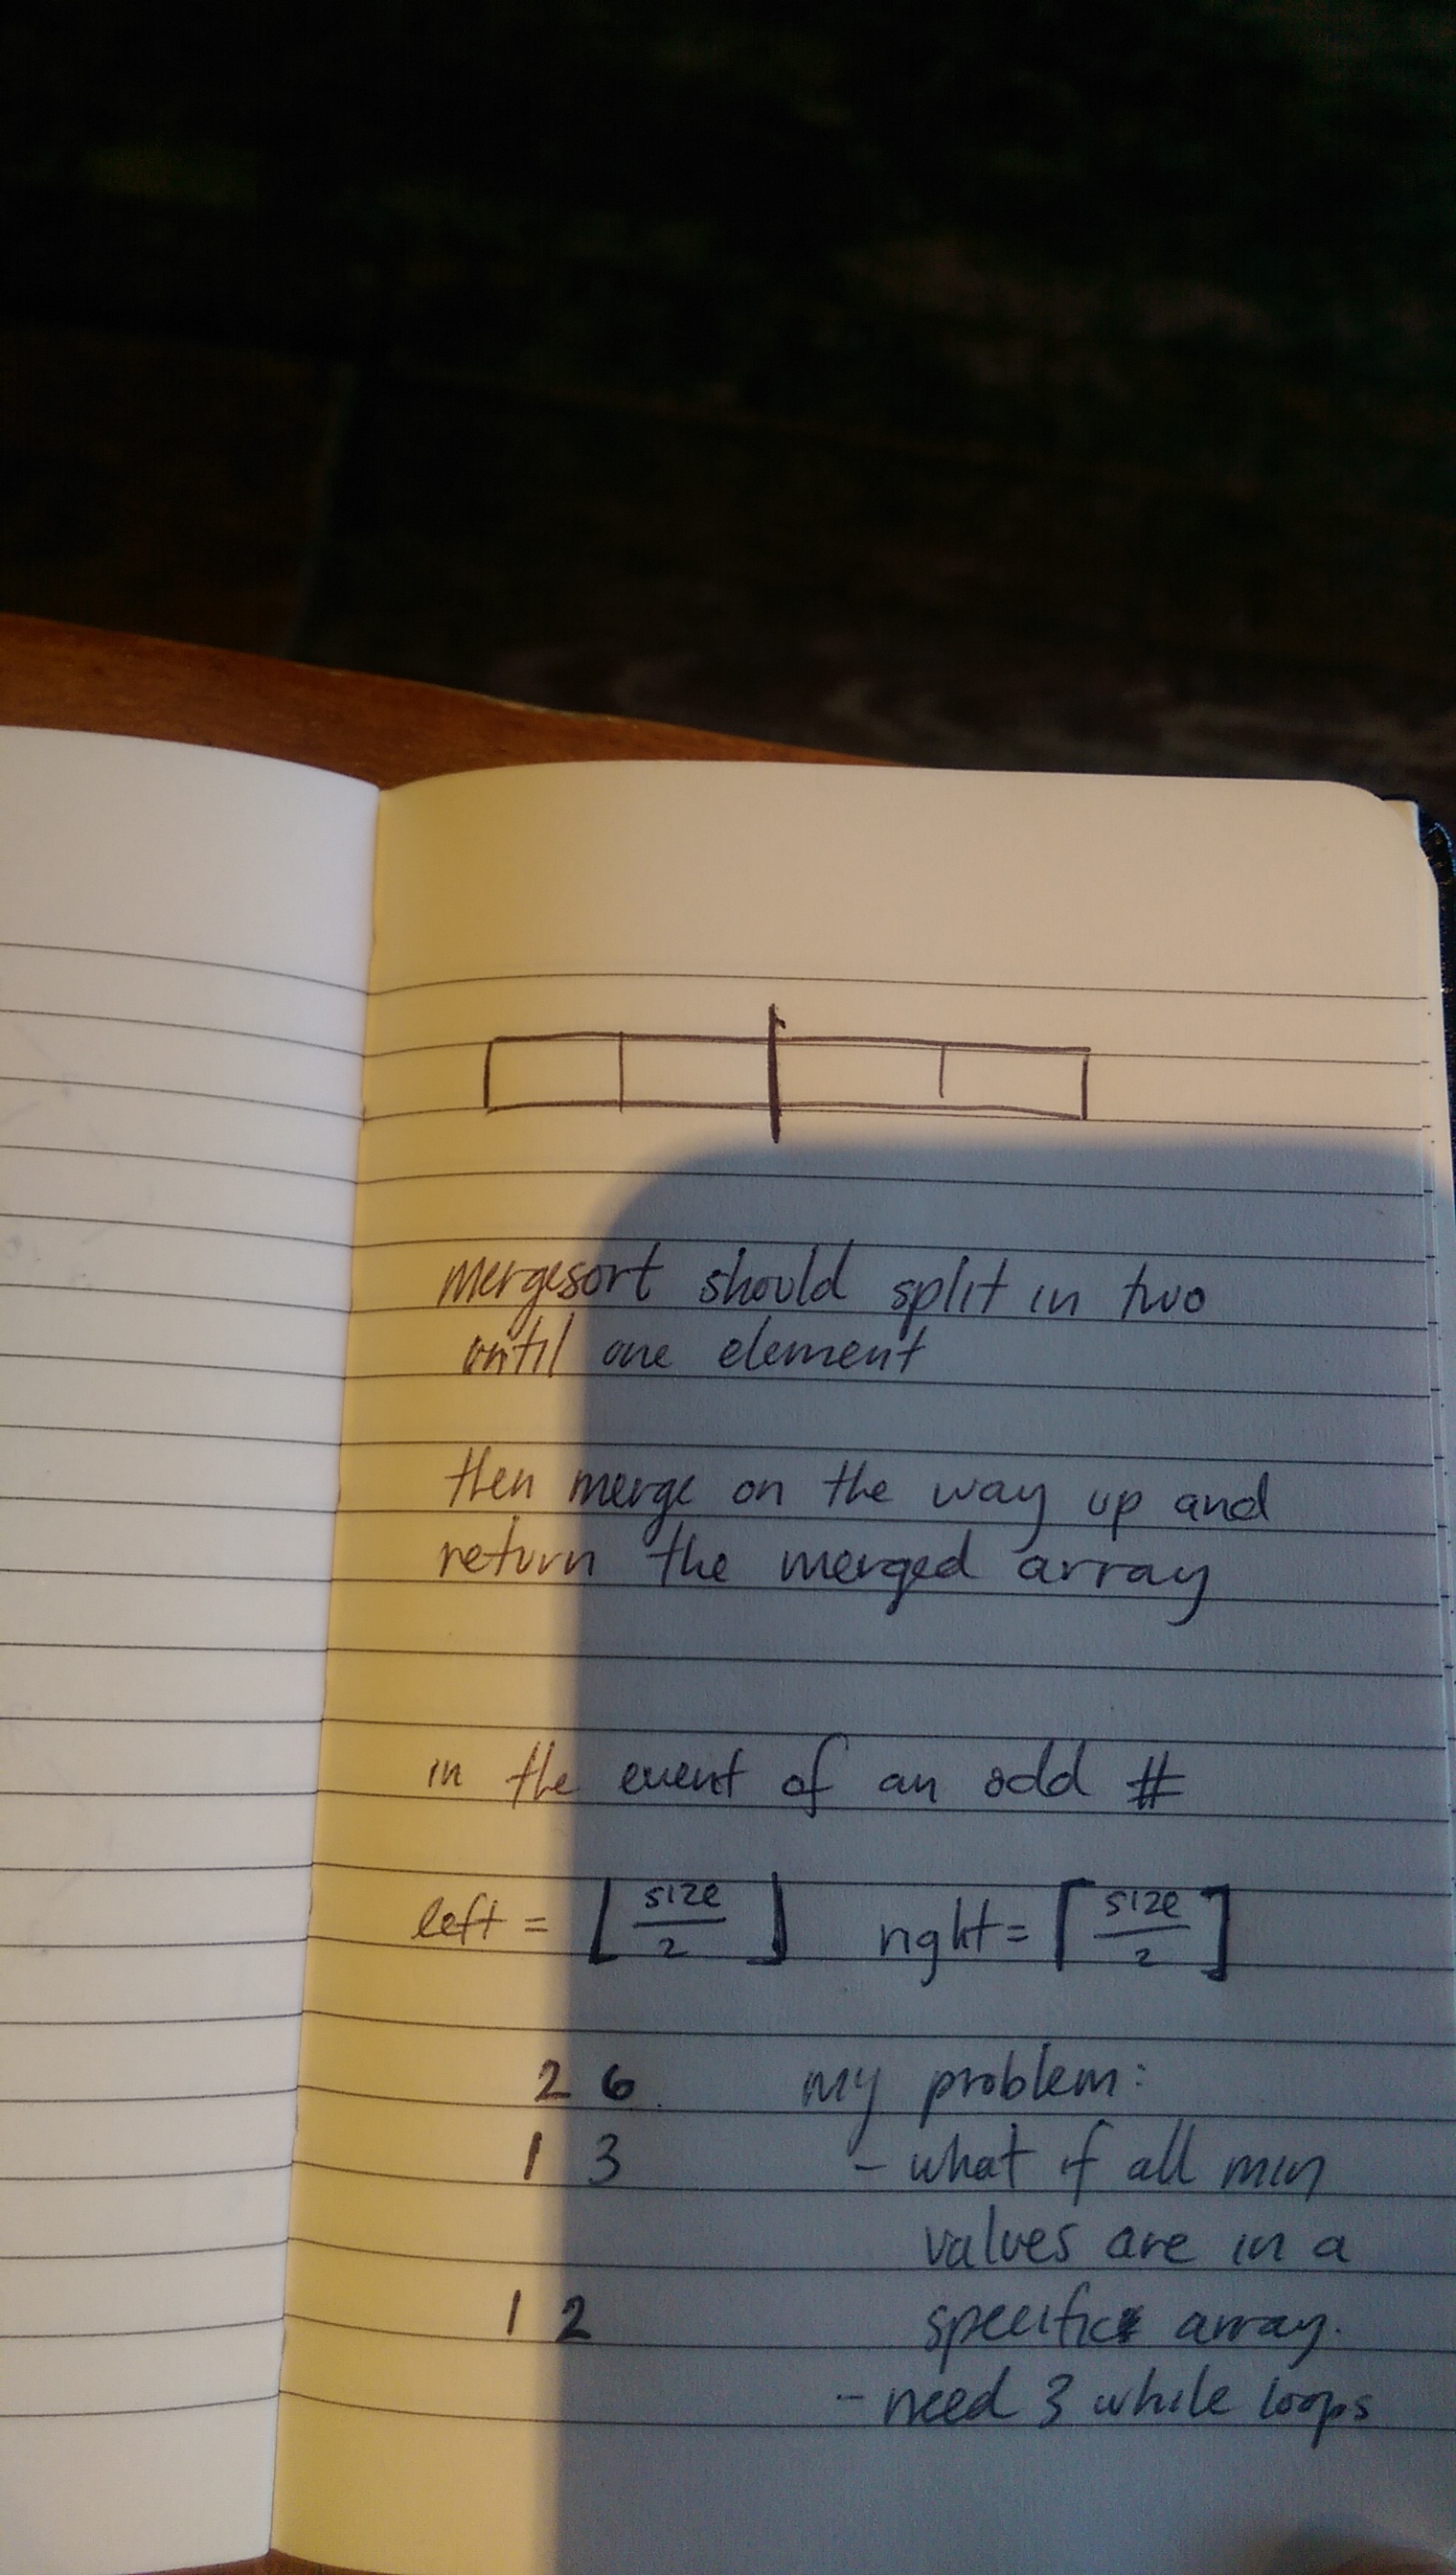 mergesort should split in two
until one element
then merge on the way up and
return the merged array
in the event of an odd #
left = ⌊ size/2 ⌋ right = ⌈ size/2 ⌉
2 6 my problem:
1 3 - what if all min
values are in a
1 2 specific array.
- need 3 while loops